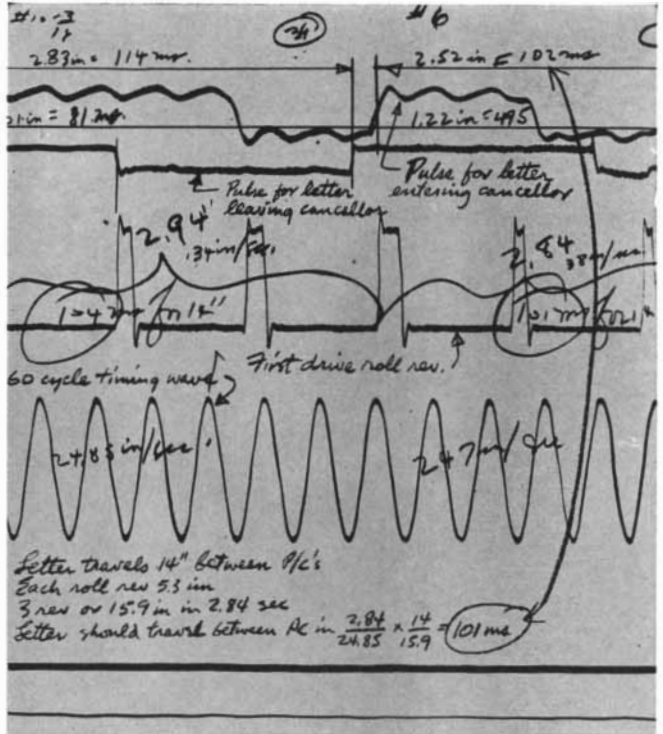 #6
2.83 in = 114 ms.
2.52 in = 102 ms
in = 81 ms.
1.22 in = 495
Pulse for letter
leaving cancellor
Pulse for letter
entering cancellor
2.94"
.34 in/sec.
2.84
104 ms for 14"
101 ms for
First drive roll rev.
60 cycle timing wave
24.85 in/sec.
24.7 in/sec
Letter travels 14" between P/c's
Each roll rev 5.3 in
3 rev or 15.9 in in 2.84 sec
Letter should travel between PC in 2.84/24.85 x 14/15.9 = 101 ms